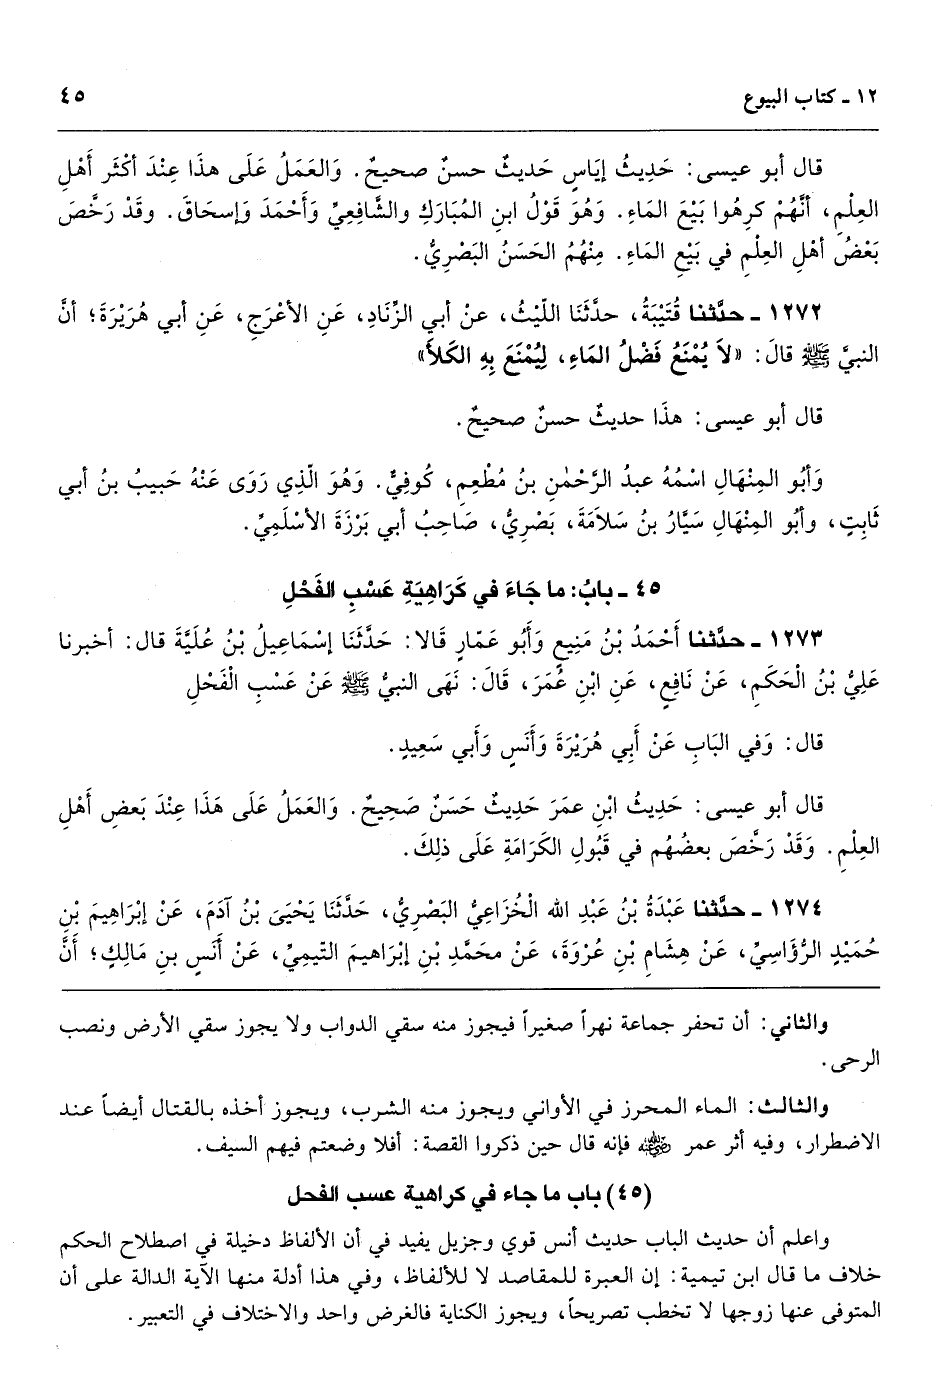 ١٢ ـ كتاب البيوع ٤٥
قال أبو عيسى: حَدِيثُ إيَاسٍ حَديثٌ حسنٌ صحيحٌ. وَالعَمَلُ عَلَى هذَا عِنْدَ أكْثَر أَهْلِ
العِلْمِ، أنَّهُمْ كرِهُوا بَيْعَ المَاءِ. وَهُوَ قَوْلُ ابنِ المُبَارَكِ والشَّافِعيِّ وَأَحْمَدَ وَإسحَاقَ. وقَدْ رَخَّصَ
بَعْضُ أهْلِ العِلْمِ في بَيْعِ المَاءِ. مِنْهُمُ الحَسَنُ البَصْرِيُّ.
١٢٧٢ ـ حدَّثنا قُتَيْبَةُ، حدَّثَنَا اللّيْثُ، عنْ أبي الزِّنَادِ، عَنِ الأعْرَجِ، عَنِ أبي هُرَيْرَةَ؛ أنَّ
النبيَّ ﷺ قالَ: «لاَ يُمْنَعُ فَضْلُ المَاءِ، لِيُمْنَعَ بِهِ الكَلأَ»
قال أبو عيسى: هذَا حديثٌ حسنٌ صحيحٌ.
وَأبُو المِنْهَالِ اسْمُهُ عبدُ الرَّحْمٰنِ بنُ مُطْعِمٍ، كُوفِيٌّ. وَهُوَ الَّذِي رَوَى عَنْهُ حَبيبُ بنُ أبي
ثَابِتٍ، وأبُو المِنْهَالِ سَيَّارُ بنُ سَلاَمَةَ، بَصْرِيُّ، صَاحِبُ أبي بَرْزَةَ الأسْلَمِيِّ.
٤٥ ـ بابُ: ما جَاءَ في كَرَاهِيَةِ عَسْبِ الفَحْلِ
١٢٧٣ ـ حدَّثنا أَحْمَدُ بْنُ مَنِيعٍ وَأَبُو عَمّارٍ قَالا: حَدَّثَنَا إسْمَاعِيلُ بْنُ عُلَيَّةَ قال: أخبرنا
عَلِيُّ بْنُ الْحَكَمِ، عَنْ نَافِعٍ، عَنِ ابْنِ عُمَرَ، قَالَ: نَهَى النبيُّ ﷺ عَنْ عَسْبِ الْفَحْلِ
قال: وَفي البَابِ عَنْ أَبِي هُرَيْرَةَ وَأَنَسٍ وَأَبي سَعِيدٍ.
قال أبو عيسى: حَدِيثُ ابْنِ عمَرَ حَدِيثٌ حَسَنٌ صَحِيحٌ. وَالعَمَلُ عَلَى هَذَا عِنْدَ بَعضِ أَهْلِ
العِلْمِ. وَقَدْ رَخَّصَ بعضُهُم في قَبُولِ الكَرَامَةِ عَلَى ذلِكَ.
١٢٧٤ ـ حدَّثنا عَبْدَةُ بْنُ عَبْدِ الله الْخُزَاعِيُّ البَصْرِيُّ، حَدَّثَنَا يَحْيَىَ بْنُ آدَمَ، عَنْ إبْرَاهِيمَ بْنِ
حُمَيْدٍ الرُّؤَاسِيِّ، عَنْ هِشَامِ بْنِ عُرْوَةَ، عَنْ محَمَّدِ بْنِ إبْرَاهيمَ التَّيمِيِّ، عَنْ أَنَسِ بنِ مَالِكٍ؛ أنَّ
والثاني: أن تحفر جماعة نهراً صغيراً فيجوز منه سقي الدواب ولا يجوز سقي الأرض ونصب
الرحى.
والثالث: الماء المحرز في الأواني ويجوز منه الشرب، ويجوز أخذه بالقتال أيضاً عند
الاضطرار، وفيه أثر عمر رضي الله عنه فإنه قال حين ذكروا القصة: أفلا وضعتم فيهم السيف.
(٤٥) باب ما جاء في كراهية عسب الفحل
واعلم أن حديث الباب حديث أنس قوي وجزيل يفيد في أن الألفاظ دخيلة في اصطلاح الحكم
خلاف ما قال ابن تيمية: إن العبرة للمقاصد لا للألفاظ، وفي هذا أدلة منها الآية الدالة على أن
المتوفى عنها زوجها لا تخطب تصريحاً، ويجوز الكناية فالغرض واحد والاختلاف في التعبير.